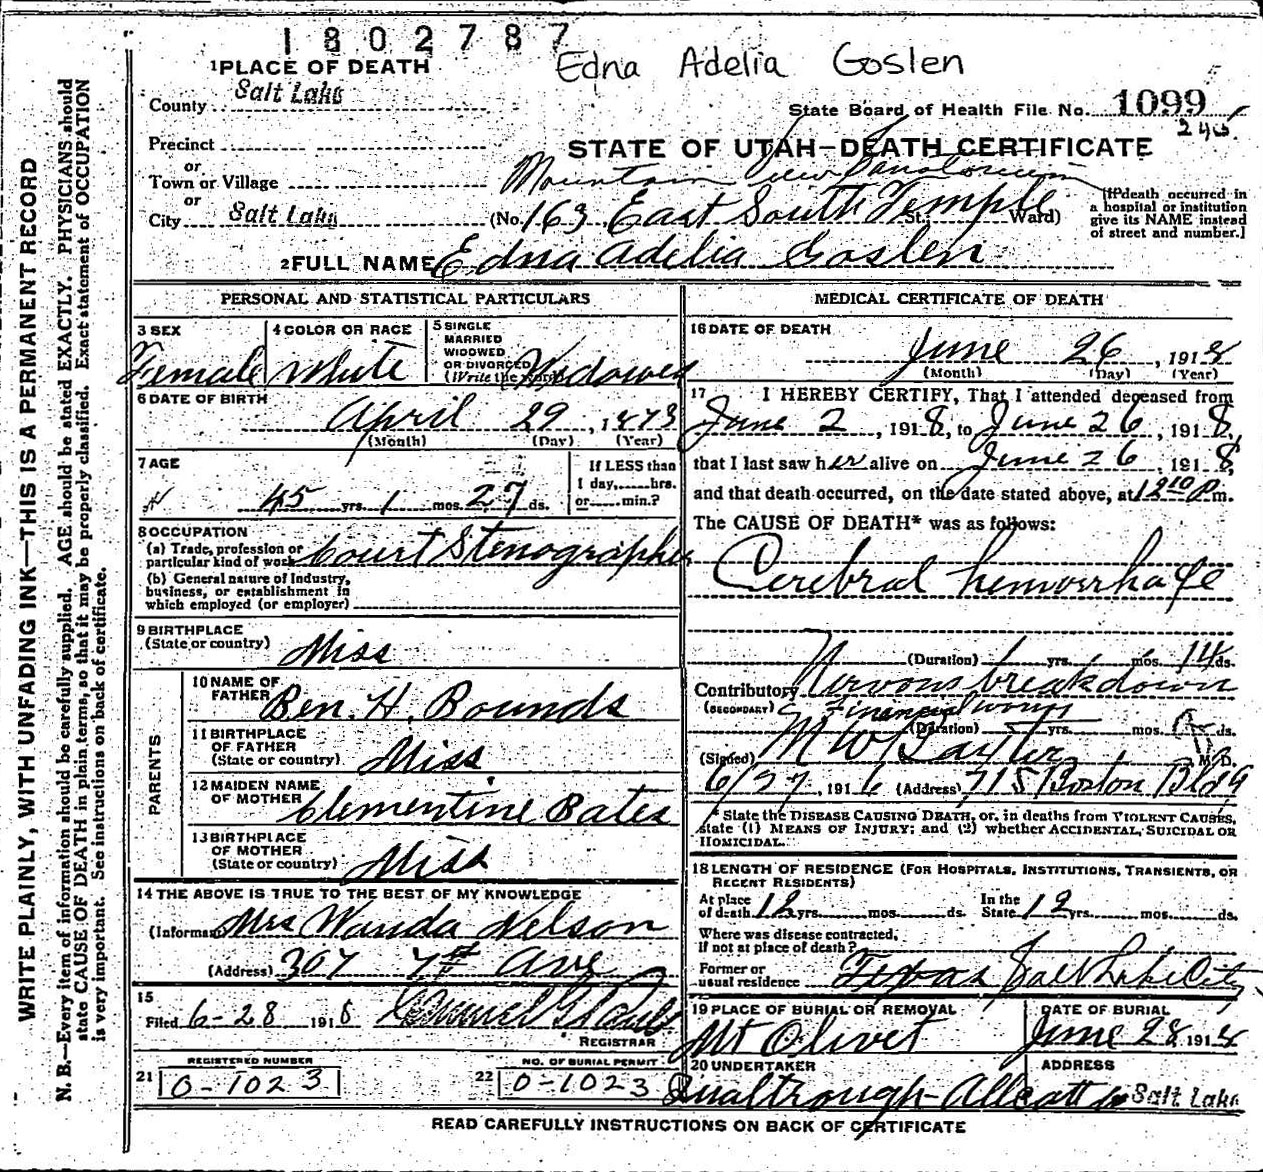 1802787
Edna Adelia Goslen
1 PLACE OF DEATH
County Salt Lake
State Board of Health File No. 1099
245
Precinct
STATE OF UTAH—DEATH CERTIFICATE
or
Town or Village
Mountain View
or
City Salt Lake (No. 163 East South Temple St.; Ward)
[If death occurred in
a hospital or institution
give its NAME instead
of street and number.]
2 FULL NAME Edna Adelia Goslen
PERSONAL AND STATISTICAL PARTICULARS
3 SEX
Female
4 COLOR OR RACE
White
5 SINGLE
MARRIED
WIDOWED
OR DIVORCED
(Write the word)
Widowed
6 DATE OF BIRTH
April 29, 1873
(Month) (Day) (Year)
7 AGE
45 yrs. 1 mos. 27 ds.
If LESS than
1 day, hrs.
or min.?
8 OCCUPATION
(a) Trade, profession or
particular kind of work Court Stenographer
(b) General nature of Industry,
business, or establishment in
which employed (or employer)
9 BIRTHPLACE
(State or country) Miss
PARENTS
10 NAME OF
FATHER Ben. H. Bounds
11 BIRTHPLACE
OF FATHER
(State or country) Miss.
12 MAIDEN NAME
OF MOTHER Clementine Bates
13 BIRTHPLACE
OF MOTHER
(State or country) Miss
14 THE ABOVE IS TRUE TO THE BEST OF MY KNOWLEDGE
(Informant Mrs Wanda Nelson
(Address) 307 7th Ave
15
Filed 6-28 1918
REGISTRAR
REGISTERED NUMBER
21 0-1023
NO. OF BURIAL PERMIT
22 0-1023
MEDICAL CERTIFICATE OF DEATH
16 DATE OF DEATH
June 26, 1918
(Month) (Day) (Year)
17 I HEREBY CERTIFY, That I attended deceased from
June 2, 1918, to June 26, 1918,
that I last saw her alive on June 26, 1918,
and that death occurred, on the date stated above, at 12 10 P m.
The CAUSE OF DEATH* was as follows:
Cerebral hemorrhage
(Duration) yrs. mos. 14 ds.
Contributory Nervous breakdown
(SECONDARY) Financial worry
(Duration) yrs. mos. ds.
(Signed) M W Taylor M.D.
6/27, 191 (Address) 715 Boston Bldg
* State the DISEASE CAUSING DEATH, or, in deaths from VIOLENT CAUSES,
state (1) MEANS OF INJURY; and (2) whether ACCIDENTAL, SUICIDAL OR
HOMICIDAL.
18 LENGTH OF RESIDENCE (FOR HOSPITALS, INSTITUTIONS, TRANSIENTS, OR
RECENT RESIDENTS)
At place
of death 12 yrs. mos. ds. In the
State 12 yrs. mos. ds.
Where was disease contracted,
If not at place of death?
Former or
usual residence Texas Salt Lake City
19 PLACE OF BURIAL OR REMOVAL
Mt Olivet
DATE OF BURIAL
June 28 1918
20 UNDERTAKER
Qualtrough-Allcott Co
ADDRESS
Salt Lake
READ CAREFULLY INSTRUCTIONS ON BACK OF CERTIFICATE
WRITE PLAINLY, WITH UNFADING INK—THIS IS A PERMANENT RECORD
N. B.—Every item of information should be carefully supplied. AGE should be stated EXACTLY. PHYSICIANS should
state CAUSE OF DEATH in plain terms, so that it may be properly classified. Exact statement of OCCUPATION
is very important. See instructions on back of certificate.